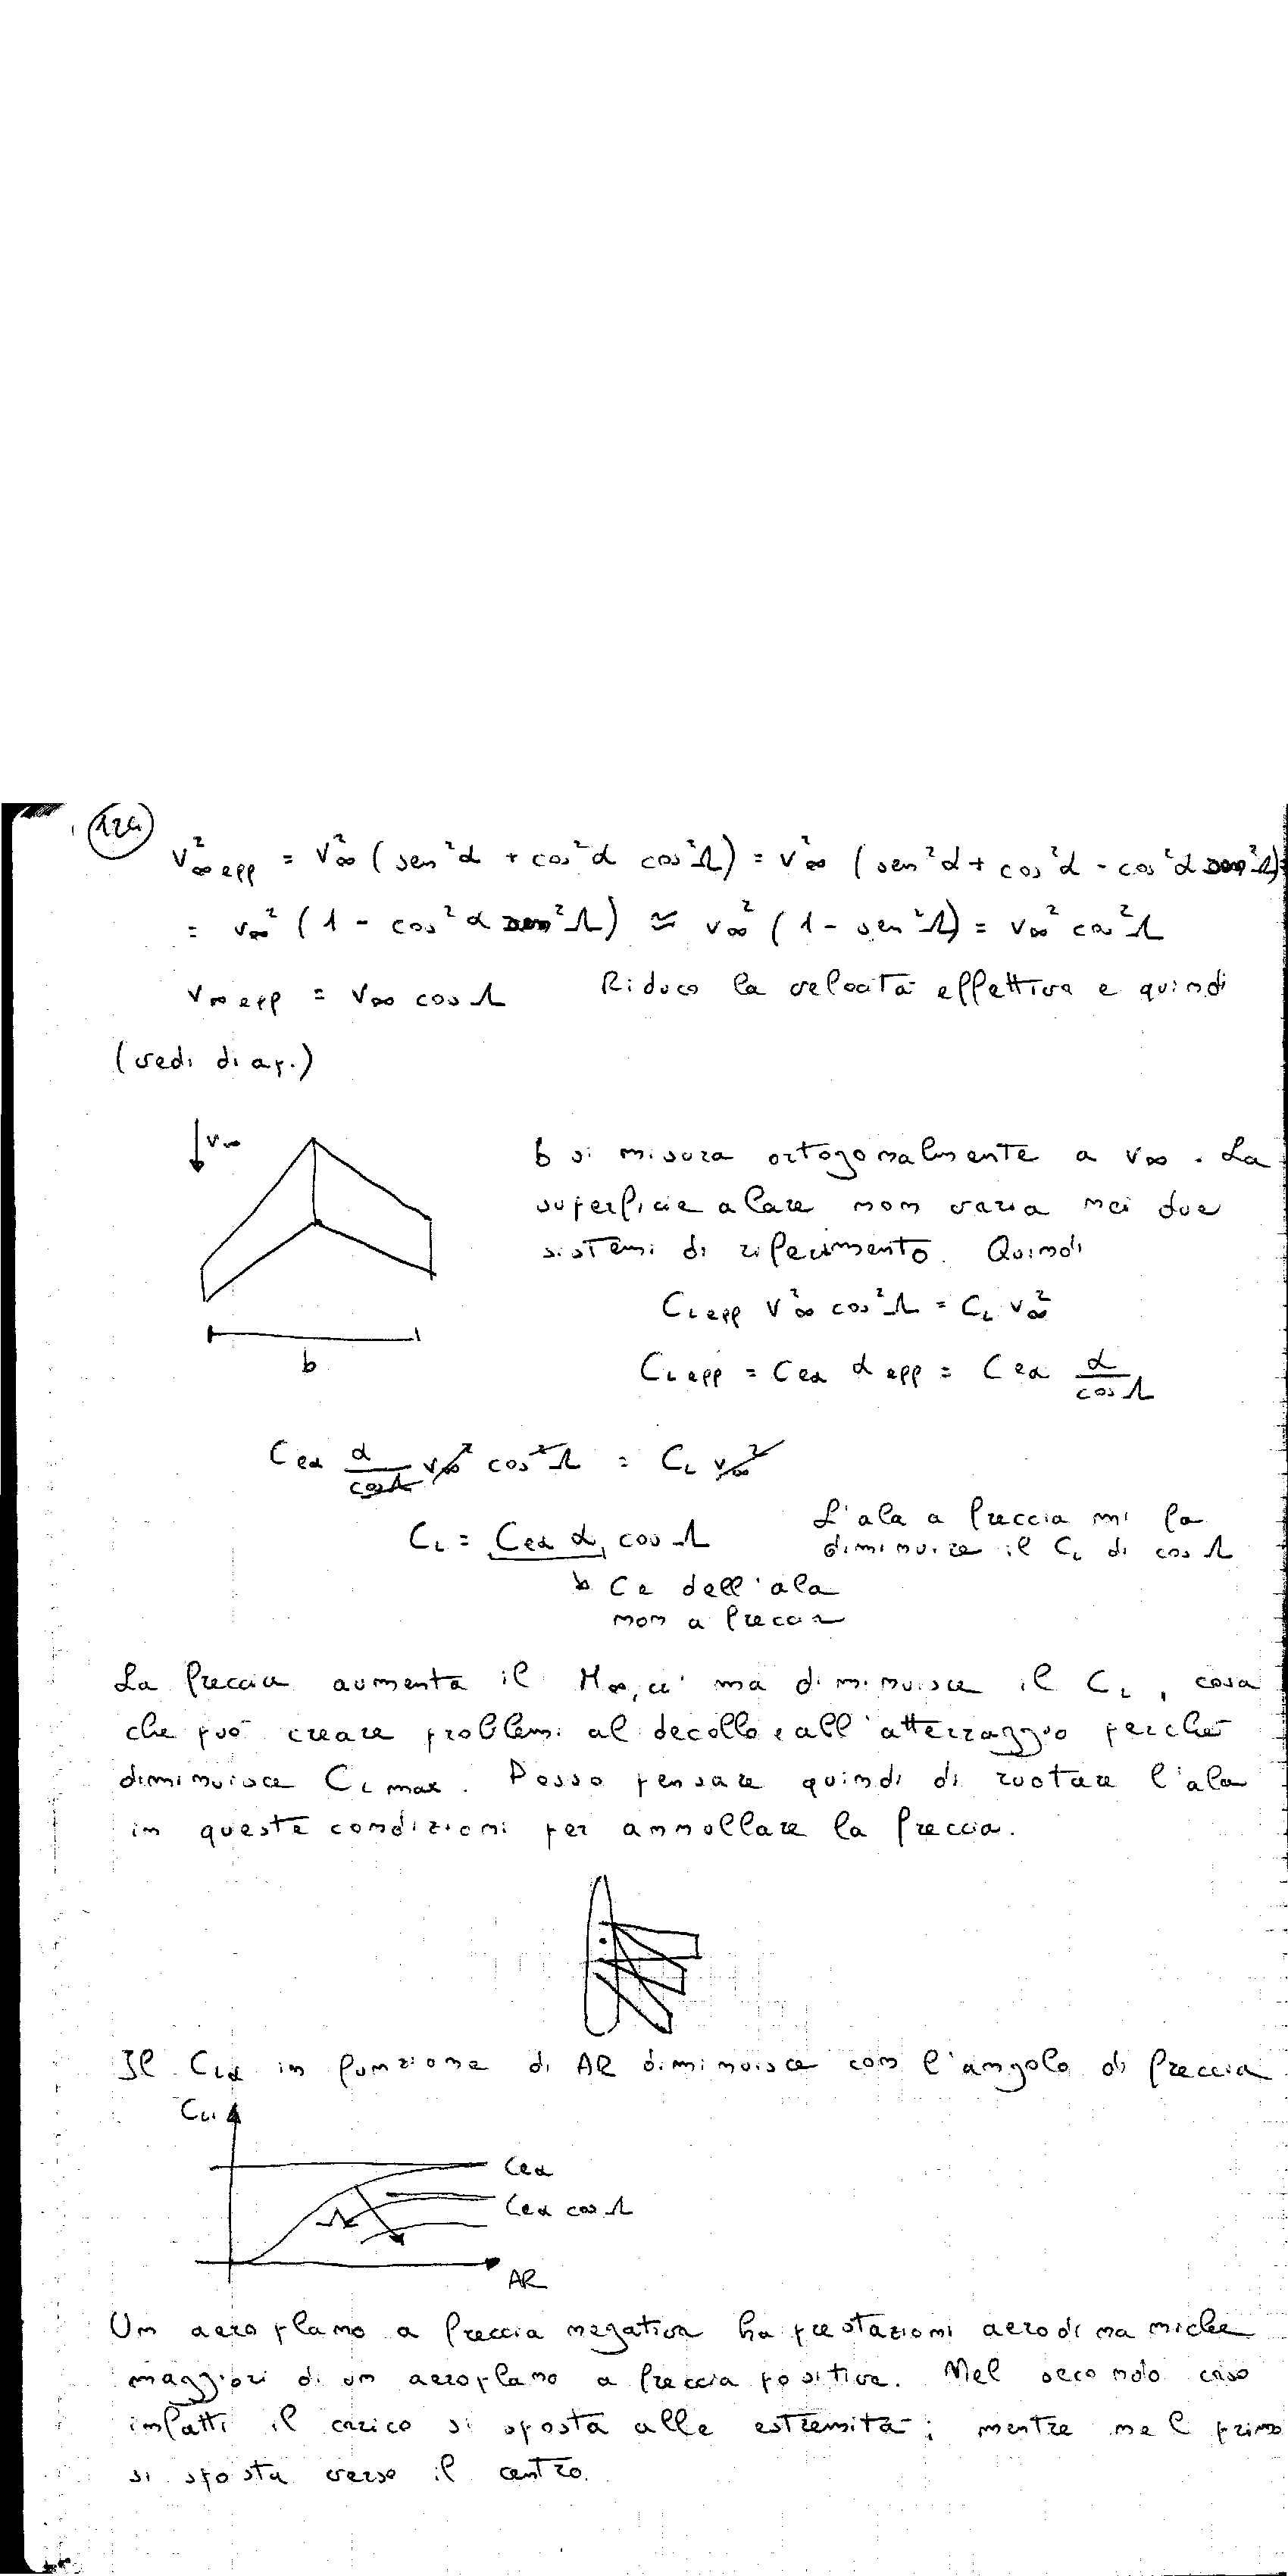 124
V²∞ eff = V²∞ (sen²α + cos²α cos²Λ) = V²∞ (sen²α + cos²α - cos²α sen²Λ) =
= V∞² (1 - cos²α sen²Λ) ≈ V∞² (1 - sen²Λ) = V∞² cos²Λ
V∞ eff = V∞ cos Λ Riduco la velocità effettiva e quindi
(vedi diap.)
V∞
b si misura ortogonalmente a V∞. La
superficie alare non varia nei due
sistemi di riferimento. Quindi
CL eff V²∞ cos²Λ = CL V∞²
b
CL eff = Clα α eff = Clα α/cos Λ
Clα α/cos Λ V∞² cos²Λ = CL V∞²
CL = Clα α cos Λ
L'ala a freccia mi fa
diminuire il CL di cos Λ
↳ Cl dell'ala
non a freccia
La freccia aumenta il M∞,cr ma diminuisce il CL, cosa
che può creare problemi al decollo e all'atterraggio perché
diminuisce CL max. Posso pensare quindi di ruotare l'ala
in queste condizioni per annullare la freccia.
Il CLα in funzione di AR diminuisce con l'angolo di freccia
CLα
Clα
Clα cos Λ
Λ
AR
Un aeroplano a freccia negativa ha prestazioni aerodinamiche
maggiori di un aeroplano a freccia positiva. Nel secondo caso
infatti il carico si sposta alle estremità; mentre nel primo
si sposta verso il centro.